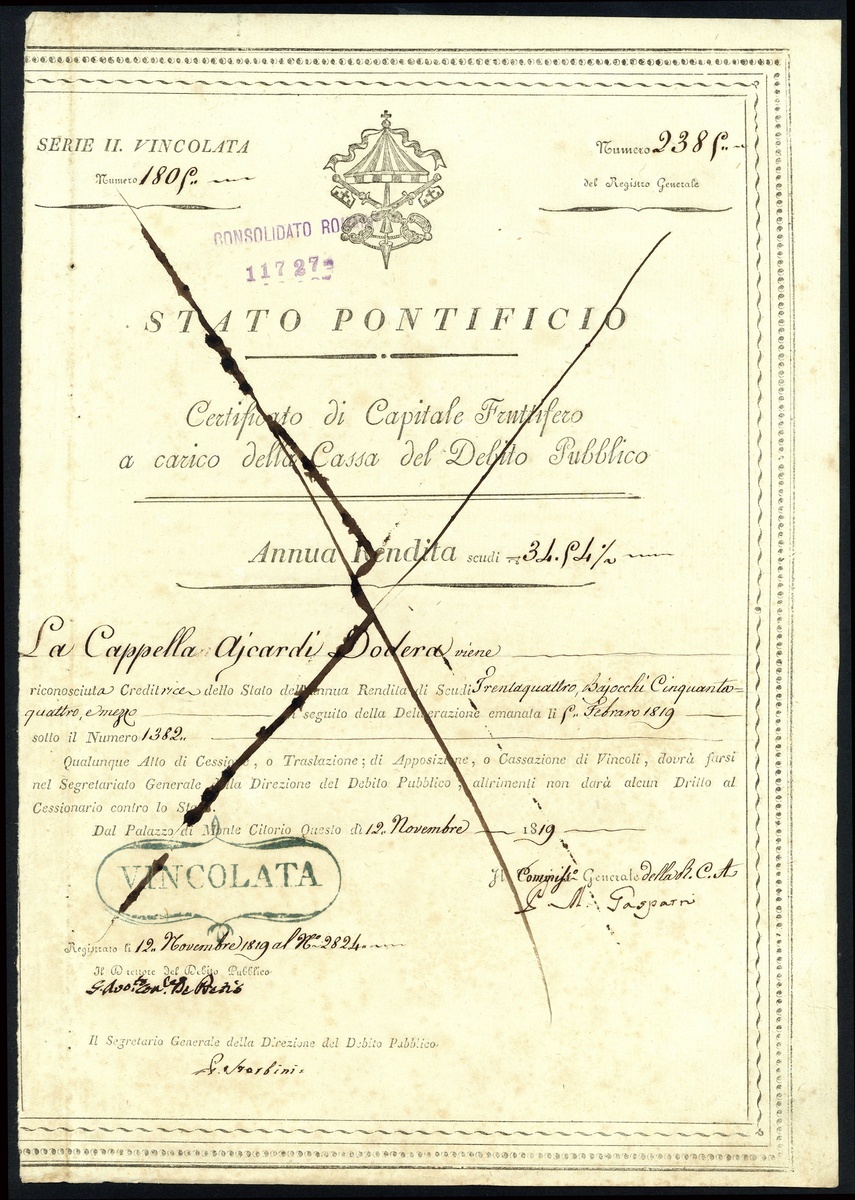 SERIE II. VINCOLATA
Numero 1805..
Numero 2385..
del Registro Generale
CONSOLIDATO
117 27
STATO PONTIFICIO
Certificato di Capitale Fruttifero
a carico della Cassa del Debito Pubblico
Annua Rendita scudi 34.54½
La Cappella Ajcardi Dodera viene
riconosciuta Creditrice dello Stato dell'annua Rendita di Scudi Trentaquattro, Bajocchi Cinquanta=
quattro, e mezzo In seguito della Deliberazione emanata li 5.. Febraro 1819
sotto il Numero 1382..
Qualunque Atto di Cessione, o Traslazione; di Apposizione, o Cassazione di Vincoli, dovrà farsi
nel Segretariato Generale della Direzione del Debito Pubblico; altrimenti non darà alcun Dritto al
Cessionario contro lo Stato.
Dal Palazzo di Monte Citorio Questo dì 12.. Novembre 1819
VINCOLATA
Il Commiss.o Generale della R. C. A
M. Gasparri
Registrato li 12.. Novembre 1819 al N.o 2824..
Il Direttore del Debito Pubblico
Il Segretario Generale della Direzione del Debito Pubblico